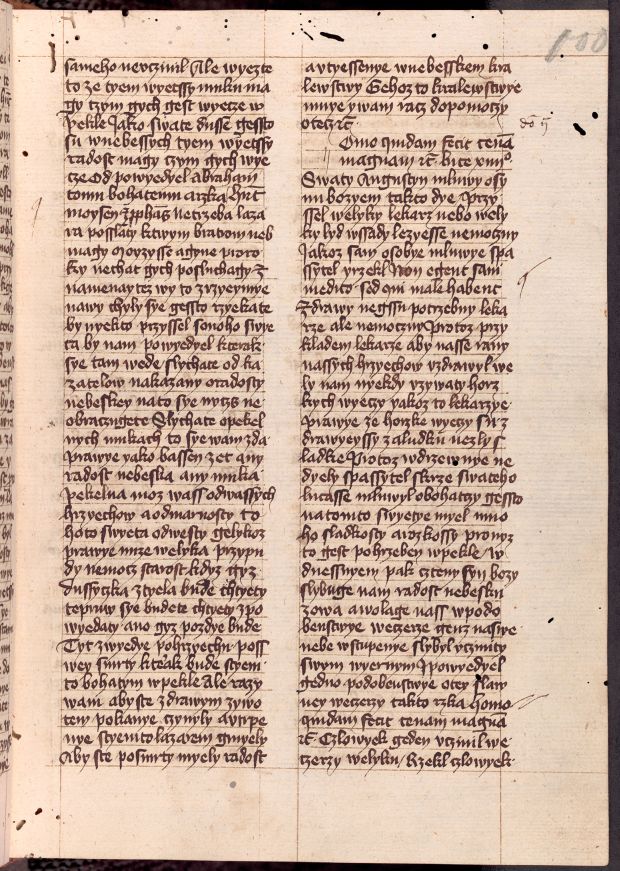 100
sameho nevczinil Ale wyezte
to ze tyem wyetssy muku ma
gy tzym gych gest wyecze w
pekle Jako swate dusse gessto
su wnebessych tyem wyetssy
radost magy czym gych wye
cze Od powyedyel Abraham
tomu bohatemu a rzka
moysen netrzeba laza
ra posslaty k twym bratom neb
magy Moyzysse a gyne proro
ky nechat gych posluchagy
namenay tez wy to zrzyeyme
nawy chyly sye gessto rzyekate
by nyekto przyssel s onoho swye
ta by nam powyedyel kterak
sye tam wede slychate od ka
zatelow nakazany o radosty
nebeskey na to sye nycz ne
obracugete Slychate o pekel
nych mukach to sye wam zda
prawye yako bassen z et any
radost nebeska any muka
pekelna moz wass odwassych
hrzyechow a odmarnosty to
hoto swyeta odwesty gelykoz
prawye mize welyka przypu
dy nemocz starost kdyz gyz
dussyczka z tyela bude chtyety
tepruw sye budete chtyety zpo
wyedaty ano gyz pozdye bude
Tyt zwyedye pohrzyechu poss
wey smrty kterak bude s tyem
to bohatym w pekle Ale razy
wam abyste z drawym zywo
tem pokanye czynyly a vprpe
nye s tyemto lazarem gmyely
Aby ste posmrty myely radost
a vtyessenye wnebesskem kra
lewstwy Gehoz to kralewstwye
mnye y wam racz dopomoczy
otecz etc
do ii
Omo quidam fecit cenam
magnam etc luce xiiii
Swaty Augustyn mluwy o sy
nu bozyem takto dye Przy
ssel welyky lekarz nebo wely
ky lyd wssady lezyesse nemoczny
Jakoz sam o sobye mluwye spa
ssytel y rzekl Non egent sani
medico sed qui male habent
Zdrawy negssu potrzebny leka
rze ale nemoczny Protoz przy
kladem lekarze aby nasse rany
nassych hrzyechow vzdrawyl we
ly nam nyekdy vzywaty horz
kych wyeczy yakoz to lekarzye
prawye ze horzke wyeczy su z
drawyeyssy zaludku nezly s
ladke Protoz wdrzewnye ne
dyely spassytel skrze swateho
lucasse mluwyl o bohatczy gessto
na tomto swyetye myel mno
ho sladkosty a rozkossy proniz
to gest pohrzeben w pekle W
dnessnyem pak cztenu syn bozy
slybuge nam radost nebesku
zowa a wolage nass w podo
benstwye weczerze genz naswe
nebe wstupenie slybyl vczinity
swym wyernym J powyedyel
gedno podobenstwye o tey slaw
ney weczerzy takto rzka Homo
quidam fecit cenam magnam
etc Czlowyek geden vczinil we
czerzy welyku Rzekl czlowyek